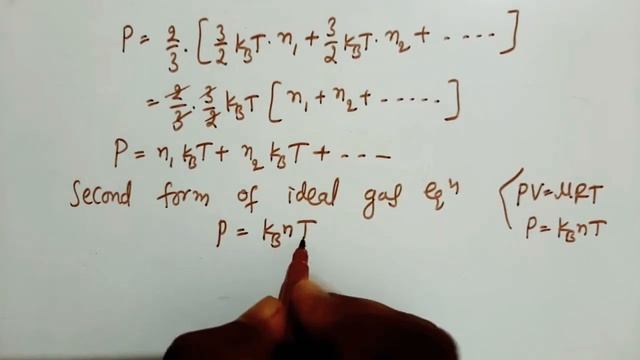 P = 2/3 · [ 3/2 k_B T · n₁ + 3/2 k_B T · n₂ + ····· ]
= 2/3 · 3/2 k_B T [ n₁ + n₂ + ····· ]
P = n₁ k_B T + n₂ k_B T + ---
Second form of ideal gas eqⁿ
P = k_B n T
PV = μRT
P = k_B n T